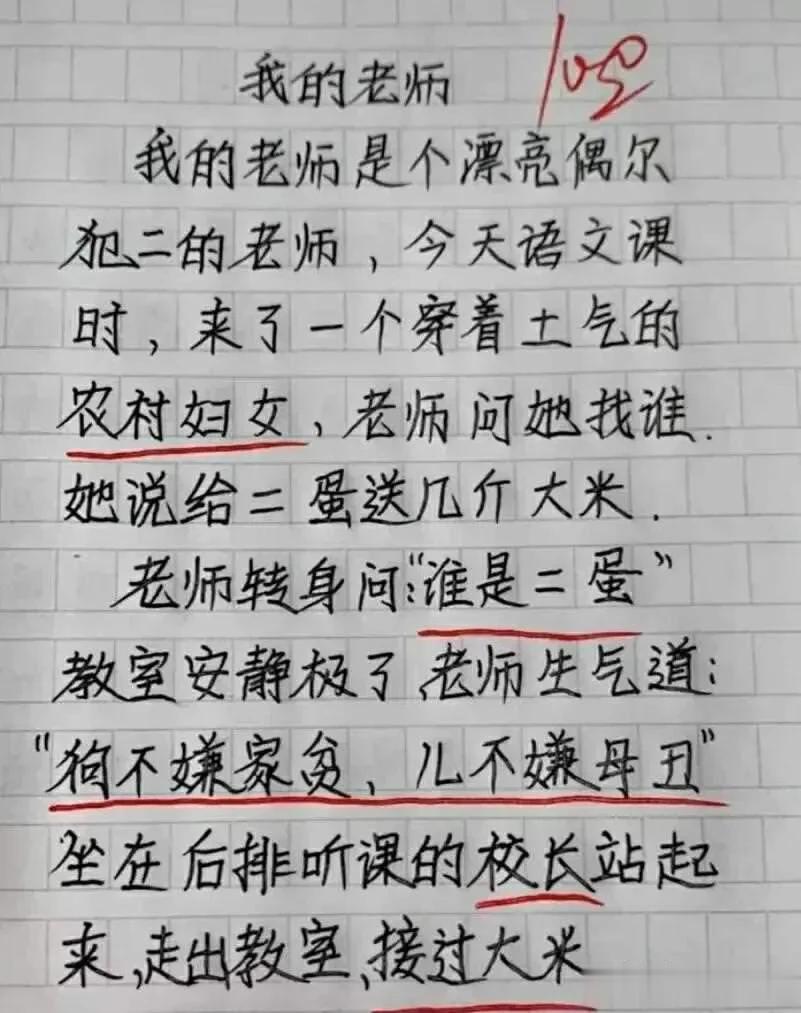 我的老师
100
我的老师是个漂亮偶尔
犯二的老师，今天语文课
时，来了一个穿着土气的
农村妇女，老师问她找谁.
她说给二蛋送几斤大米.
老师转身问:“谁是二蛋”
教室安静极了,老师生气道:
“狗不嫌家贫、儿不嫌母丑”
坐在后排听课的校长站起
来,走出教室,接过大米